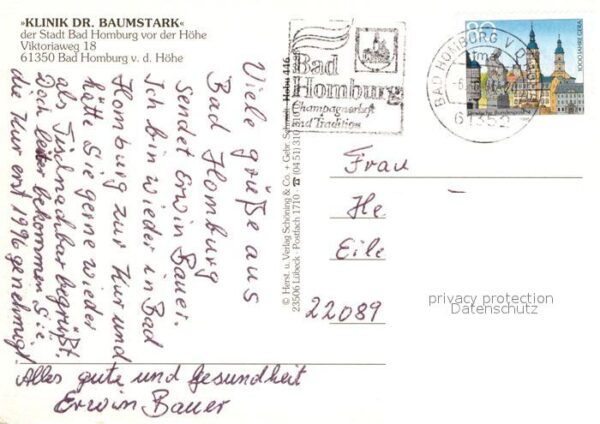 »KLINIK DR. BAUMSTARK«
der Stadt Bad Homburg vor der Höhe
Viktoriaweg 18
61350 Bad Homburg v. d. Höhe
Viele grüße aus
Bad Homburg
sendet Erwin Bauer.
Ich bin wieder in Bad
Homburg zur Kur und
hätte Sie gerne wieder
als Tischnachbar begrüßt.
Doch leider bekommen Sie
die Kur erst 1996 genehmigt
Alles gute und Gesundheit
Erwin Bauer
© Herst. u. Verlag Schöning & Co. + Gebr. Schmidt
23506 Lübeck · Postfach 1710 · ☎ (04 51) 310 310
Bad
Homburg
Champagnerluft
und Tradition
BAD HOMBURG V D
61352
80
1000 JAHRE GERA
Frau
He
Eile
22089
privacy protection
Datenschutz